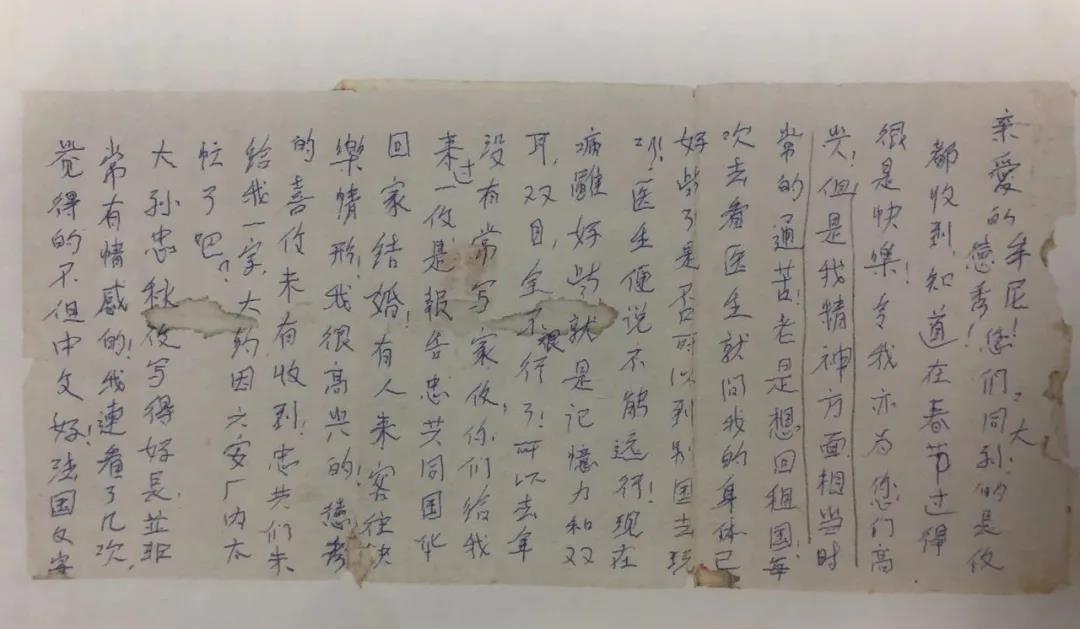 亲爱的年尼！大
德秀！您们同利的是仪
都收到，知道在春节过得
很是快樂！令我亦为您们高
兴！但是我精神方面相当时
常的通苦！老是想回祖国！每
次去看医生就问我的身体已
好些了是否可以到别国去玩
医生便说不能远行！现在
病虽好些就是记憶力和双
耳，双目，全不很行了！所以去年
没有常写家仪，你们给我
来过一仪是報告忠共同国华
回家结婚！有人来客往快
樂情形！我很高兴的！德秀
的喜仪未有收到！忠共们未
给我一字，大约因六安厂内太
忙了吧？
大孙忠秋仪写得好長，並非
常有情感的！我連看了几次，
觉得的不但中文好！法国文字